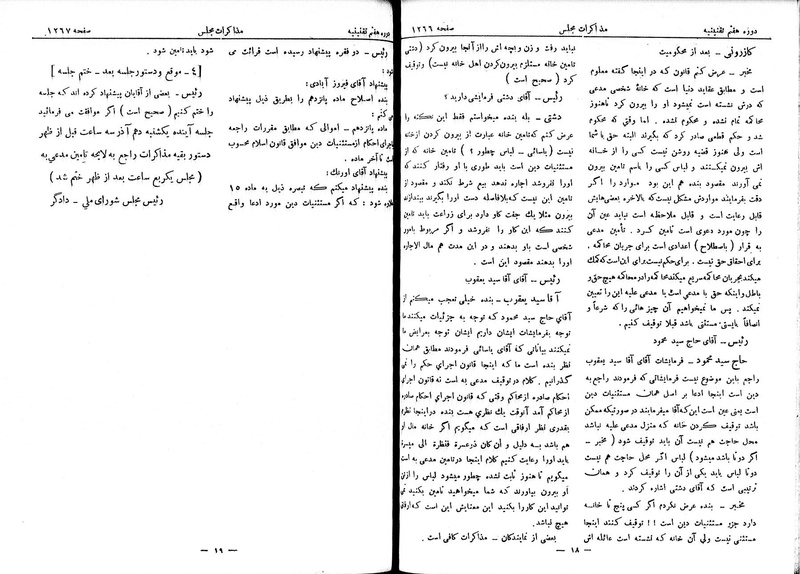 دوره هفتم تقنینیه
مذاکرات مجلس
صفحه ۱۲۶۶
کازرونی - بعد از محکومیت
مخبر - عرض کنم قانون که در اینجا گفته معلوم
است و مطابق عقاید دنیا است که خانۀ شخصی مدعی
که درش نشسته است نمیشود او را بیرون کرد تاهنوز
محاکمه تمام نشده و محکوم نشده . اما وقتی که محکوم
شد و حکم قطعی صادر کرد که بگیرند البته حق با شما
است ولی هنوز قضیه روشن نیست کسی را از خانه
اش بیرون نمیکنند و لباس کسی را باسم تامین بیرون
نمی آورند مقصود بنده هم این بود . موارد را اگر
دقت بفرمایند مواردش مشکل نیست که بالاخره بعضی‌هایش
قابل رعایت است و قابل ملاحظه است نباید عین آن
را چون مورد دعوی است تامین کرد . تأمین
به قرار ( باصطلاح ) اعدادی است برای جریان محاکمه .
برای احقاق حق نیست . برای حکم نیست برای این است که کمک
میکند بجریان محاکمه سریع میکند محاکمه را و در محاکمه هیچ حق و
باطل و اینکه حق با مدعی است با مدعی علیه این را تعیین
نمیکند . پس ما نمیخواهیم آن چیز هائی را که شرعاً و
انصافاً بایستی مستثنی باشد قبلا توقیف کنیم .
رئیس - آقای حاج سید محمود
حاج سید محمود - فرمایشات آقای آقا سید یعقوب
راجع باین موضوع نیست فرمایشاتی که فرمودند راجع به
دین است اینجا ادعا بر اصل همان مستثنیات دین
است یعنی عین است این که آقا میفرمایند در صورتیکه ممکن
باشد توقیف کردن خانه که منزل مدعی علیه نباشد
محل حاجت هم نیست آن باید توقیف شود ( مخبر -
اگر دو تا باشد میشود ) لباس اگر محل حاجت هم نیست
دو تا لباس باید یکی از آن را توقیف کرد و همان
ترتیبی است که آقای دشتی اشاره کردند .
مخبر - بنده عرض نکردم اگر کسی پنج تا خانه
دارد جزو مستثنیات دین است !! توقیف کنند اینجا
مستثنی نیست ولی آن خانه که نشسته است عائله اش
نباید رفت و زن و بچه اش را از آنجا بیرون کرد ( دشتی
تامین خانه مستلزم بیرون کردن اهل خانه نیست ) توقیف
کرد ( صحیح است )
رئیس - آقای دشتی فرمایشی دارید ؟
دشتی - بله بنده میخواستم فقط این نکته را
عرض کنم که تامین خانه عبارت از بیرون کردن از خانه
نیست ( یاسائی - لباس چطور ؟ ) تامین خانه که از
مستثنیات دین است باید طوری با او رفتار کنند که
اورا نفروشد اجاره ندهد بیع شرط نکند و مقصود از
تامین این نیست که بلافاصله دست اورا بگیرند بیندازند
بیرون مثلا یک جفت گاو دارد برای زراعت باید تامین
کنند که این گاو را نفروشد و اگر مربوط بامور
شخصی است باو بدهند و در این مدت هم مال الاجاره
اورا بدهند مقصود این است .
رئیس - آقای آقا سید یعقوب
آقا سید یعقوب - بنده خیلی تعجب میکنم از
آقای حاج سید محمود که توجه به جزئیات میکنند ما
توجه بفرمایشات ایشان داریم ایشان توجه بعرایض ما
نمیکنند بیاناتی که آقای یاسائی فرمودند مطابق همان
نظر بنده است ما که اینجا قانون اجرای حکم را نمی
گذرانیم . کلام در توقیف مدعی به است نه قانون اجرای
احکام صادره از محاکم وقتی که قانون اجرای احکام صادره
از محاکم آمد آنوقت یک نظری هست بنده در اینجا نظرم
بقدری نظر ارفاقی است که میگویم اگر خانه مال او
هم باشد به دلیل و ان کان ذوعسرة فنظرة الی میسرة
باید اورا رعایت کنیم کلام اینجا در تامین مدعی به است
میگویم تا هنوز ثابت نشده چطور میشود لباس را از تن
او بیرون بیاورند که شما میخواهید تامین بکنید نمی
توانید این کار را بکنید این معنایش این است که ارفاق
هیچ نباشد .
بعضی از نمایندگان - مذاکرات کافی است .
- ۱۸ -
دوره هفتم تقنینیه
مذاکرات مجلس
صفحه ۱۲۶۷
رئیس - دو فقره پیشنهاد رسیده است قرائت می
شود :
پیشنهاد آقای فیروز آبادی :
بنده اصلاح ماده یازدهم را بطریق ذیل پیشنهاد
می کنم :
ماده یازدهم - اموالی که مطابق مقررات راجعه
باجرای احکام از مستثنیات دین موافق قانون اسلام محسوب
تا آخر ماده .
پیشنهاد آقای اورنک :
بنده پیشنهاد میکنم که تبصره ذیل به ماده ۱۵
علاوه شود : که اگر مستثنیات دین مورد ادعا واقع
شود باید تامین شود .
[ ٤ - موقع و دستور جلسه بعد - ختم جلسه ]
رئیس - بعضی از آقایان پیشنهاد کرده اند که جلسه
را ختم کنیم ( صحیح است ) اگر موافقت می فرمائید
جلسه آینده یکشنبه دهم آذر سه ساعت قبل از ظهر
دستور بقیه مذاکرات راجع به لایحه تامین مدعی به
( مجلس یکربع ساعت بعد از ظهر ختم شد )
رئیس مجلس شورای ملی - دادگر
- ۱۹ -